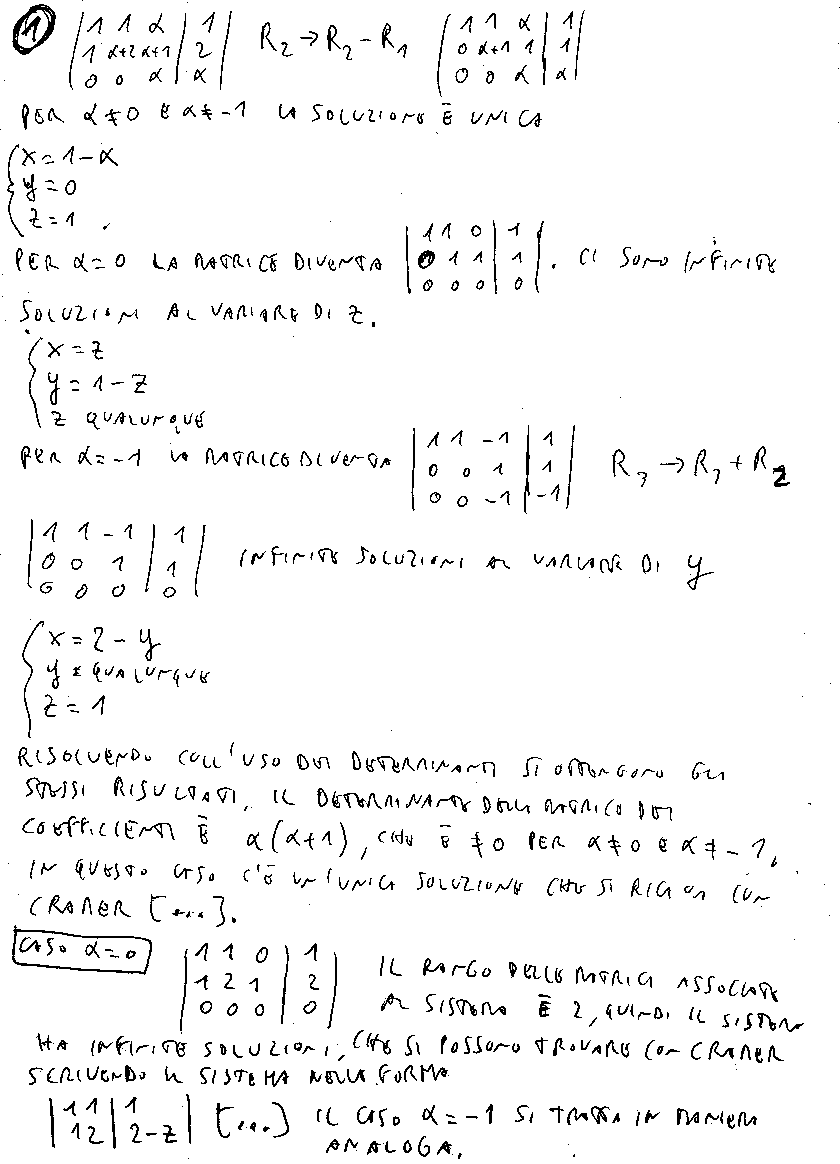 ① | 1 1 α | 1 | R₂ → R₂ - R₁ | 1 1 α | 1 |
| 1 α+2 α+1 | 2 | | 0 α+1 1 | 1 |
| 0 0 α | α | | 0 0 α | α |
PER α ≠ 0 E α ≠ -1 LA SOLUZIONE È UNICA
{ x = 1 - α
y = 0
z = 1 .
PER α = 0 LA MATRICE DIVENTA | 1 1 0 | 1 | . CI SONO INFINITE
| 0 1 1 | 1 |
| 0 0 0 | 0 |
SOLUZIONI AL VARIARE DI z.
{ x = z
y = 1 - z
z QUALUNQUE
PER α = -1 LA MATRICE DIVENTA | 1 1 -1 | 1 | R₃ → R₃ + R₂
| 0 0 1 | 1 |
| 0 0 -1 | -1 |
| 1 1 -1 | 1 |
| 0 0 1 | 1 | INFINITE SOLUZIONI AL VARIARE DI y
| 0 0 0 | 0 |
{ x = 2 - y
y = QUALUNQUE
z = 1
RISOLVENDO COLL'USO DEI DETERMINANTI SI OTTENGONO GLI
STESSI RISULTATI, IL DETERMINANTE DELLA MATRICE DEI
COEFFICIENTI È α(α+1), CHE È ≠ 0 PER α ≠ 0 E α ≠ -1,
IN QUESTO CASO C'È UN'UNICA SOLUZIONE CHE SI RICAVA CON
CRAMER [...].
CASO α = 0 | 1 1 0 | 1 | IL RANGO DELLE MATRICI ASSOCIATE
| 1 2 1 | 2 | AL SISTEMA È 2, QUINDI IL SISTEMA
| 0 0 0 | 0 |
HA INFINITE SOLUZIONI, CHE SI POSSONO TROVARE CON CRAMER
SCRIVENDO IL SISTEMA NELLA FORMA
| 1 1 | 1 | [...] IL CASO α = -1 SI TRATTA IN MANIERA
| 1 2 | 2-z | ANALOGA.